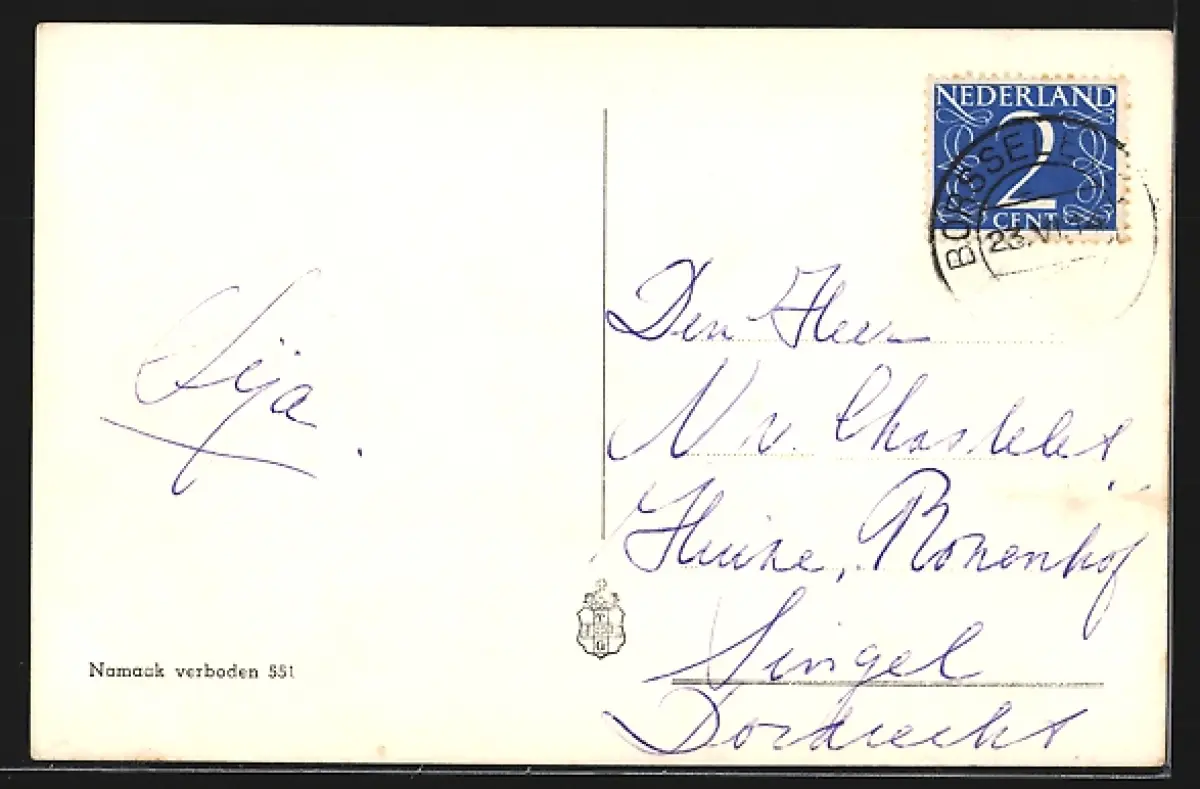 NEDERLAND
2
CENT
BORSSELE
23.VI.
Den Heer
N v. Chastelet
Huize, Rozenhof
Singel
Dordrecht
Sija
T
G
Namaak verboden 551